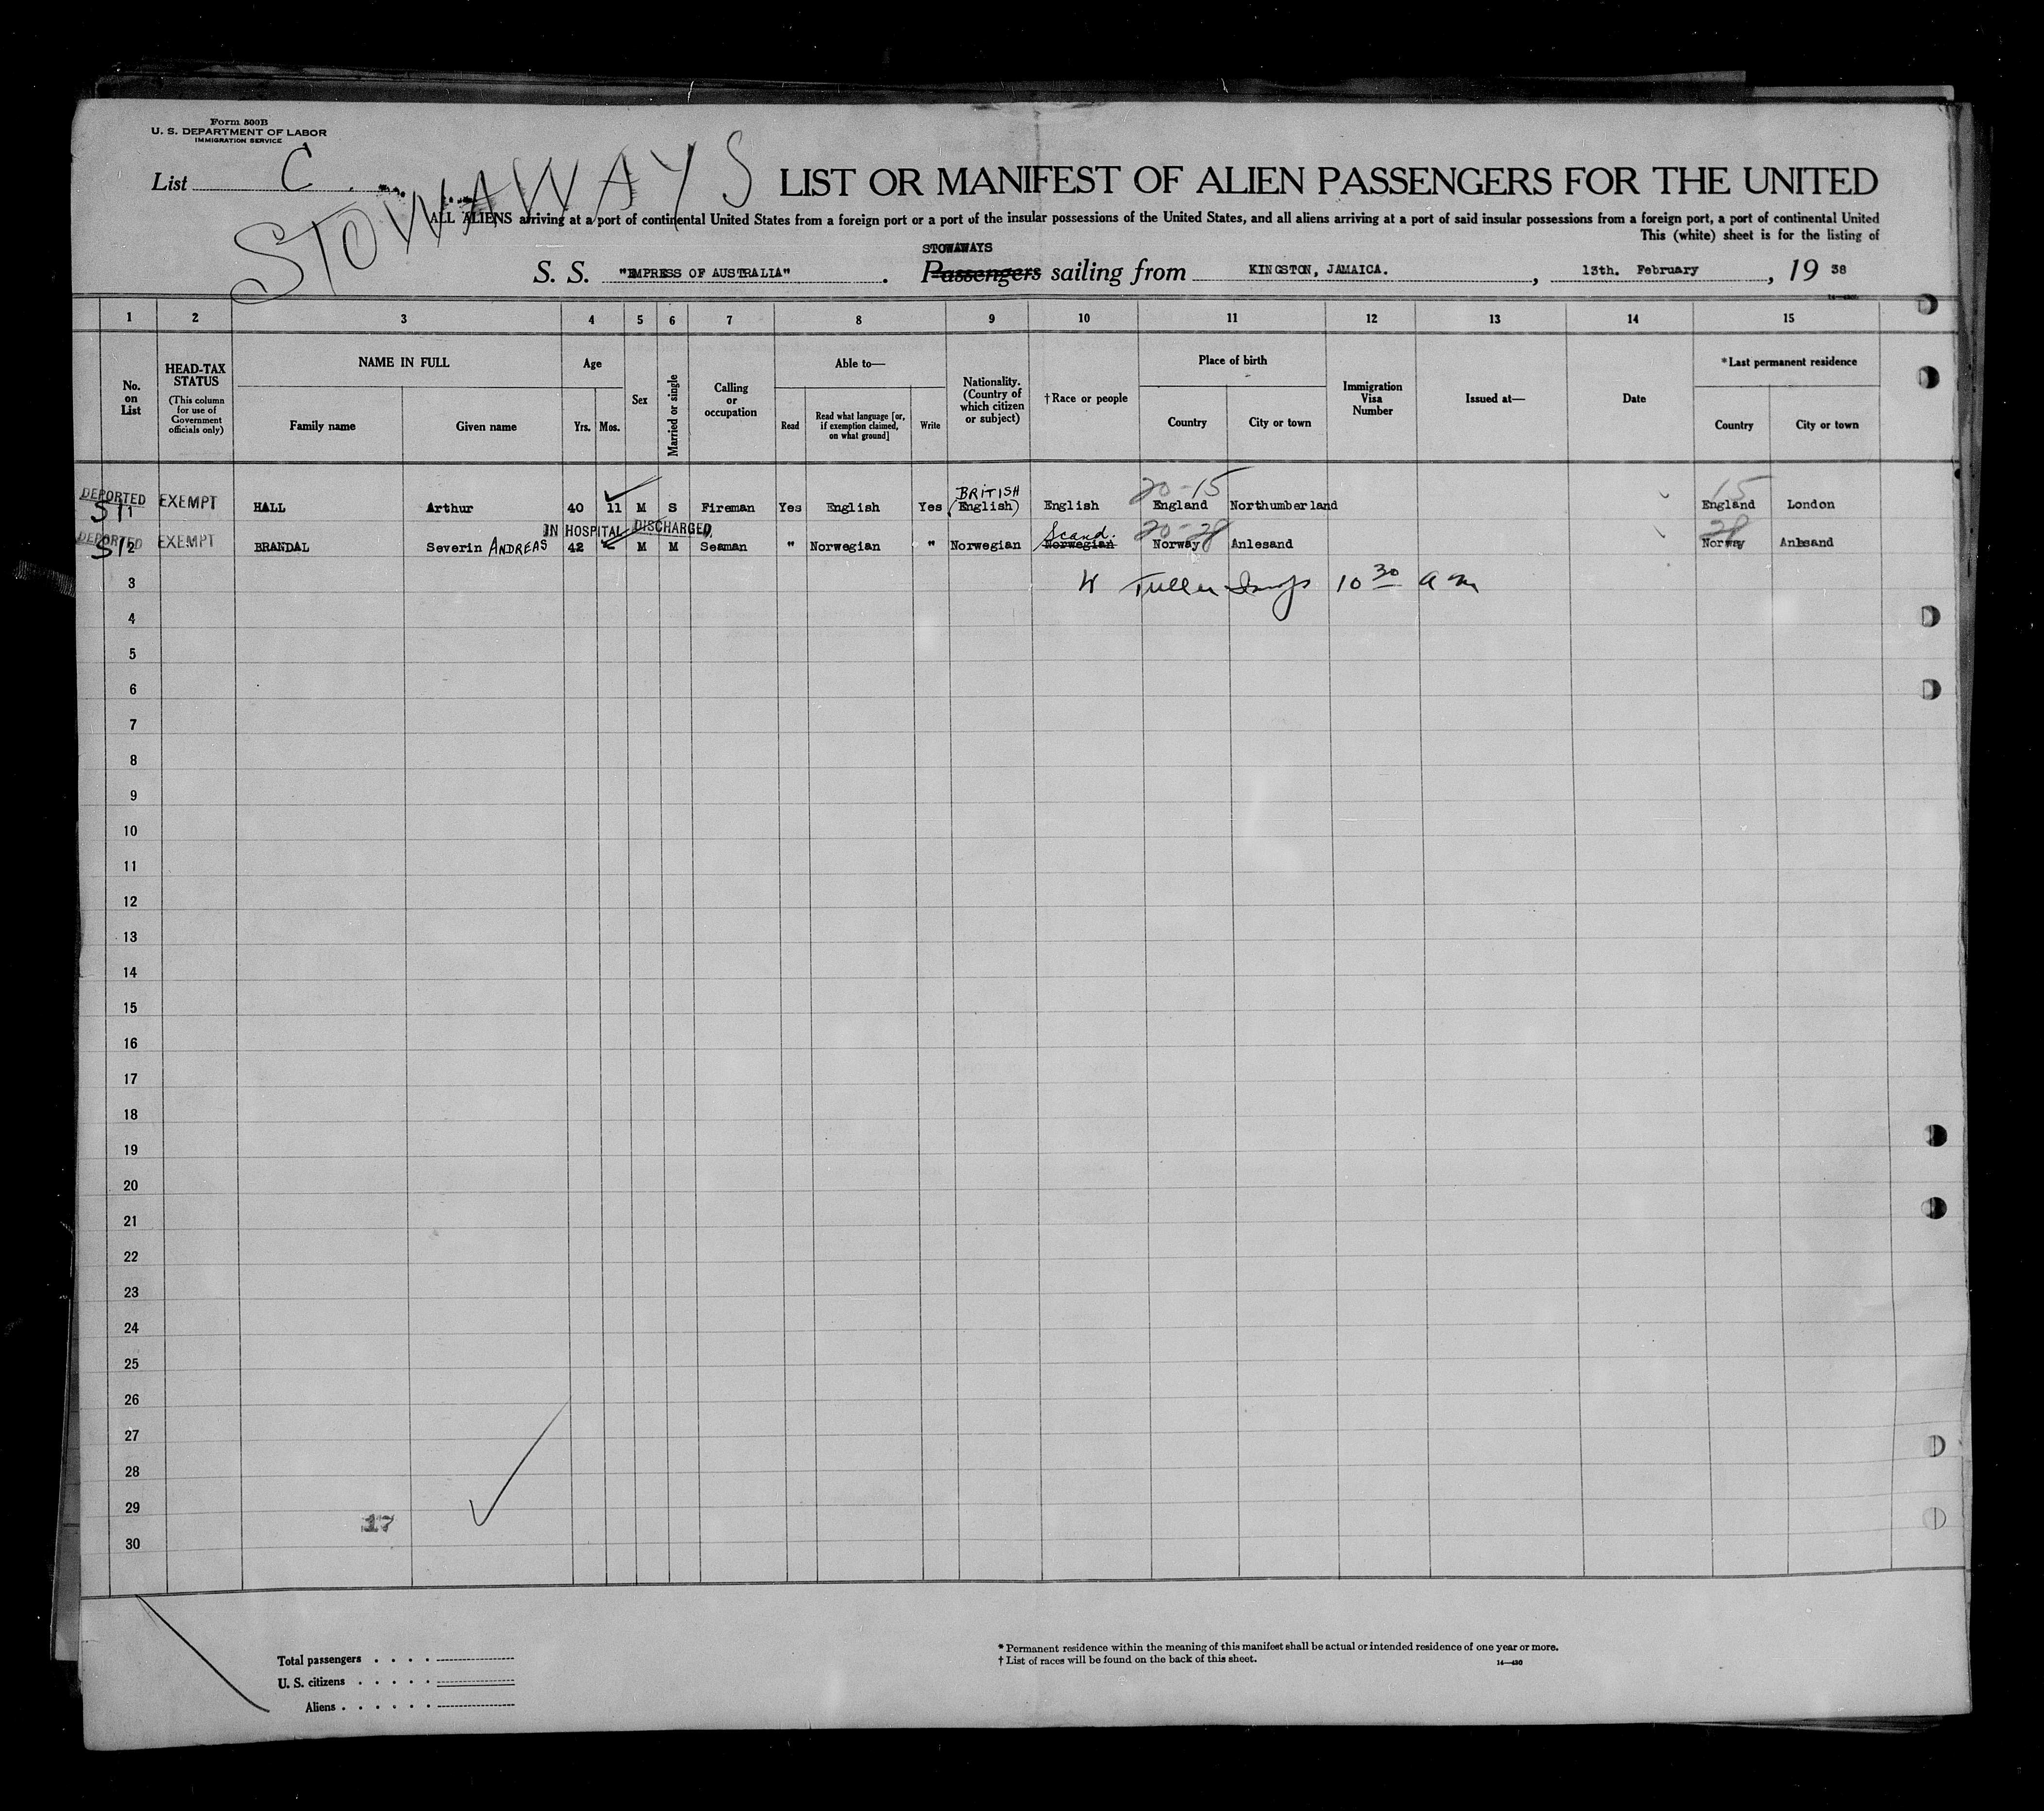 Form 500B
U. S. DEPARTMENT OF LABOR
IMMIGRATION SERVICE
List C
STOWAWAYS
LIST OR MANIFEST OF ALIEN PASSENGERS FOR THE UNITED
ALL ALIENS arriving at a port of continental United States from a foreign port or a port of the insular possessions of the United States, and all aliens arriving at a port of said insular possessions from a foreign port, a port of continental United
This (white) sheet is for the listing of
STOWAWAYS
S. S. "EMPRESS OF AUSTRALIA". Passengers sailing from KINGSTON, JAMAICA., 13th. February, 19 38
1 2 3 4 5 6 7 8 9 10 11 12 13 14 15
No. on List
HEAD-TAX STATUS (This column for use of Government officials only)
NAME IN FULL Family name Given name
Age Yrs. Mos.
Sex
Married or single
Calling or occupation
Able to— Read Read what language [or, if exemption claimed, on what ground] Write
Nationality. (Country of which citizen or subject)
†Race or people
Place of birth Country City or town
Immigration Visa Number
Issued at—
Date
*Last permanent residence Country City or town
BRITISH 20-15 15
DEPORTED S11 EXEMPT HALL Arthur 40 11 M S Fireman Yes English Yes (English) English England Northumberland England London
IN HOSPITAL DISCHARGED Scand. 20-28 28
DEPORTED S12 EXEMPT BRANDAL Severin ANDREAS 42 M M Seaman " Norwegian " Norwegian Norwegian Norway Anlesand Norway Anlesand
3 10 30 a m
4
5
6
7
8
9
10
11
12
13
14
15
16
17
18
19
20
21
22
23
24
25
26
27
28
29
17
30
Total passengers . . . .
U. S. citizens . . . . .
Aliens . . . . . .
* Permanent residence within the meaning of this manifest shall be actual or intended residence of one year or more.
† List of races will be found on the back of this sheet.
14—430